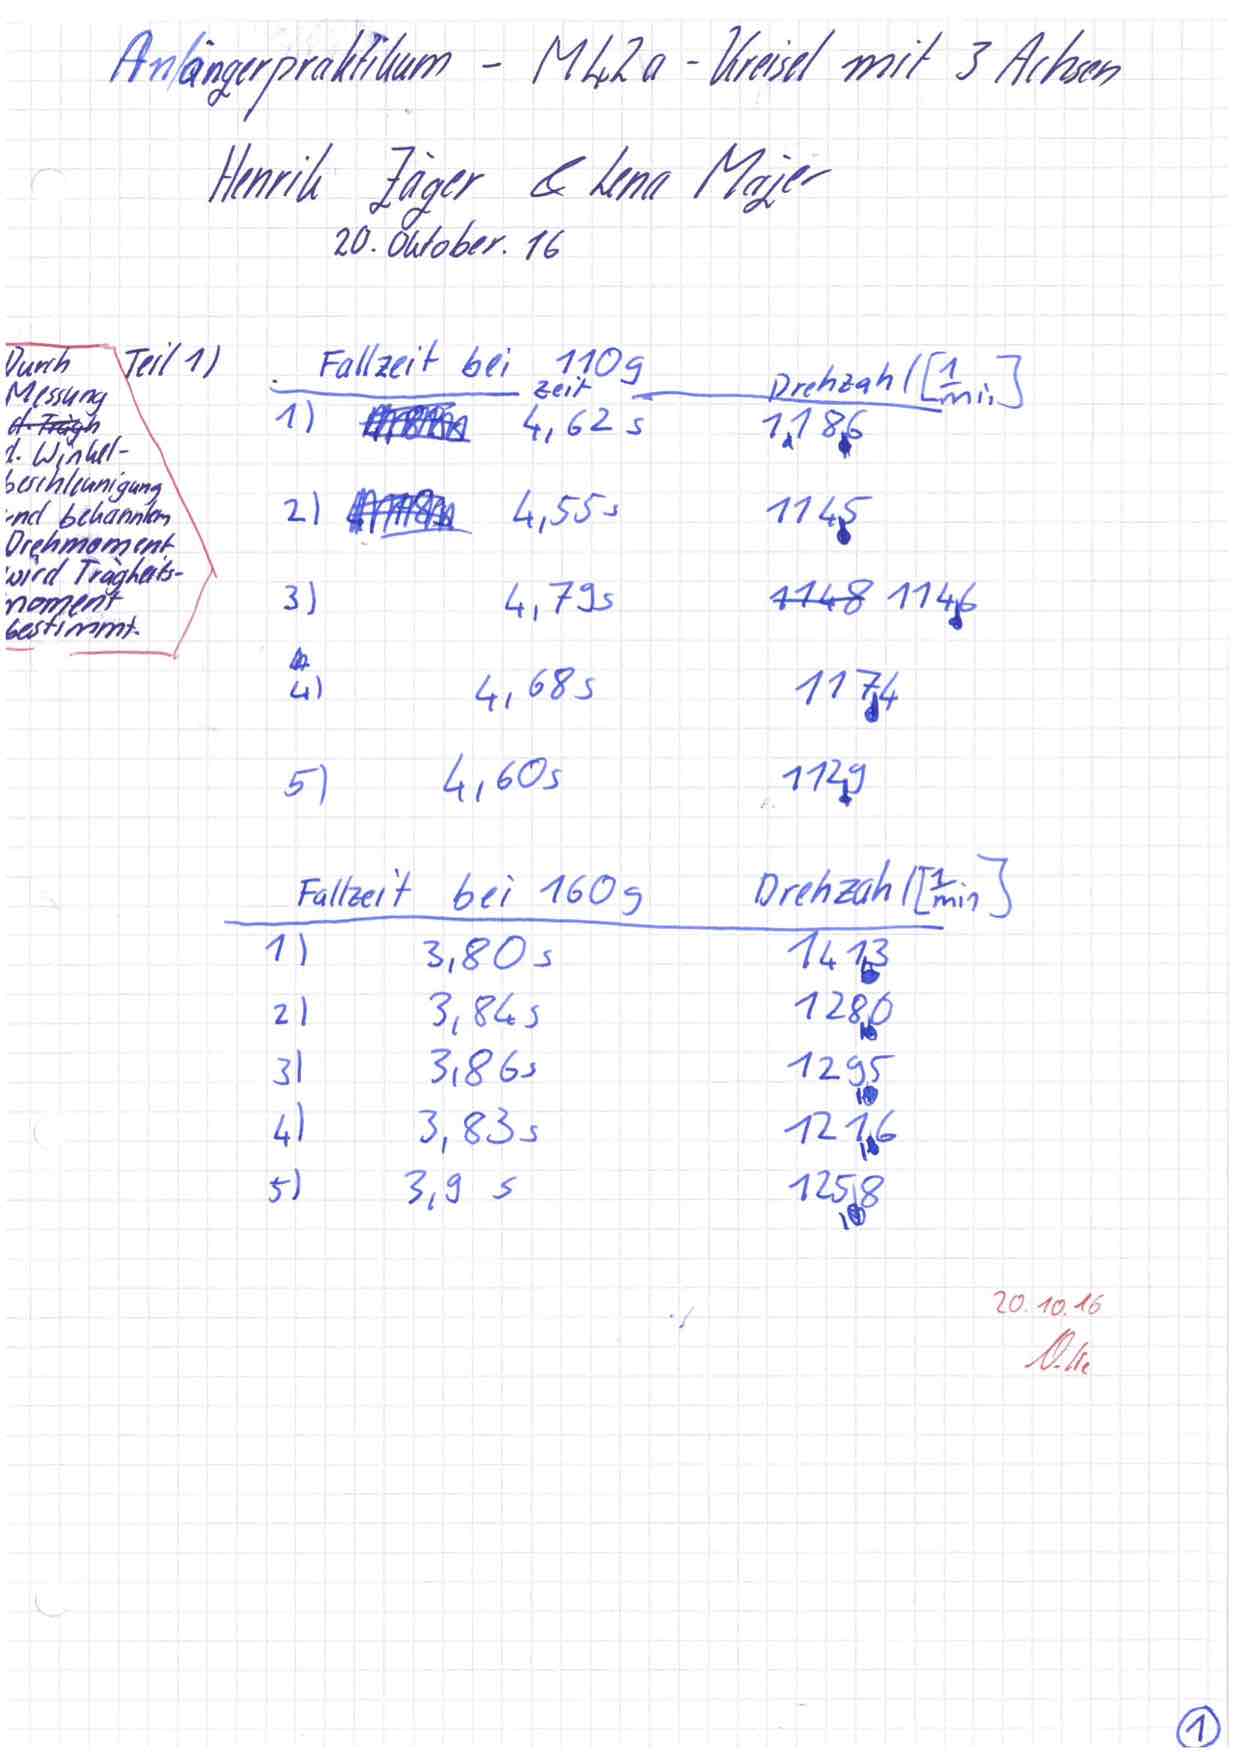 Anfängerpraktikum - M42a - Kreisel mit 3 Achsen
Henrik Jäger & Lena Majer
20. Oktober. 16
Durch
Messung
d. Trägh
d. Winkel-
beschleunigung
und bekannten
Drehmoment
wird Trägheits-
moment
bestimmt.
Teil 1)
Fallzeit bei 110g Drehzahl [1/min]
zeit
1) 4,62 s 118,6
2) 4,55s 114,5
3) 4,79s 1148 114,6
4) 4,68s 117,4
5) 4,60s 112,9
Fallzeit bei 160g Drehzahl [1/min]
1) 3,80 s 141,3
2) 3,84s 128,0
3) 3,86s 129,5
4) 3,83s 121,6
5) 3,9 s 125,8
20.10.16
1